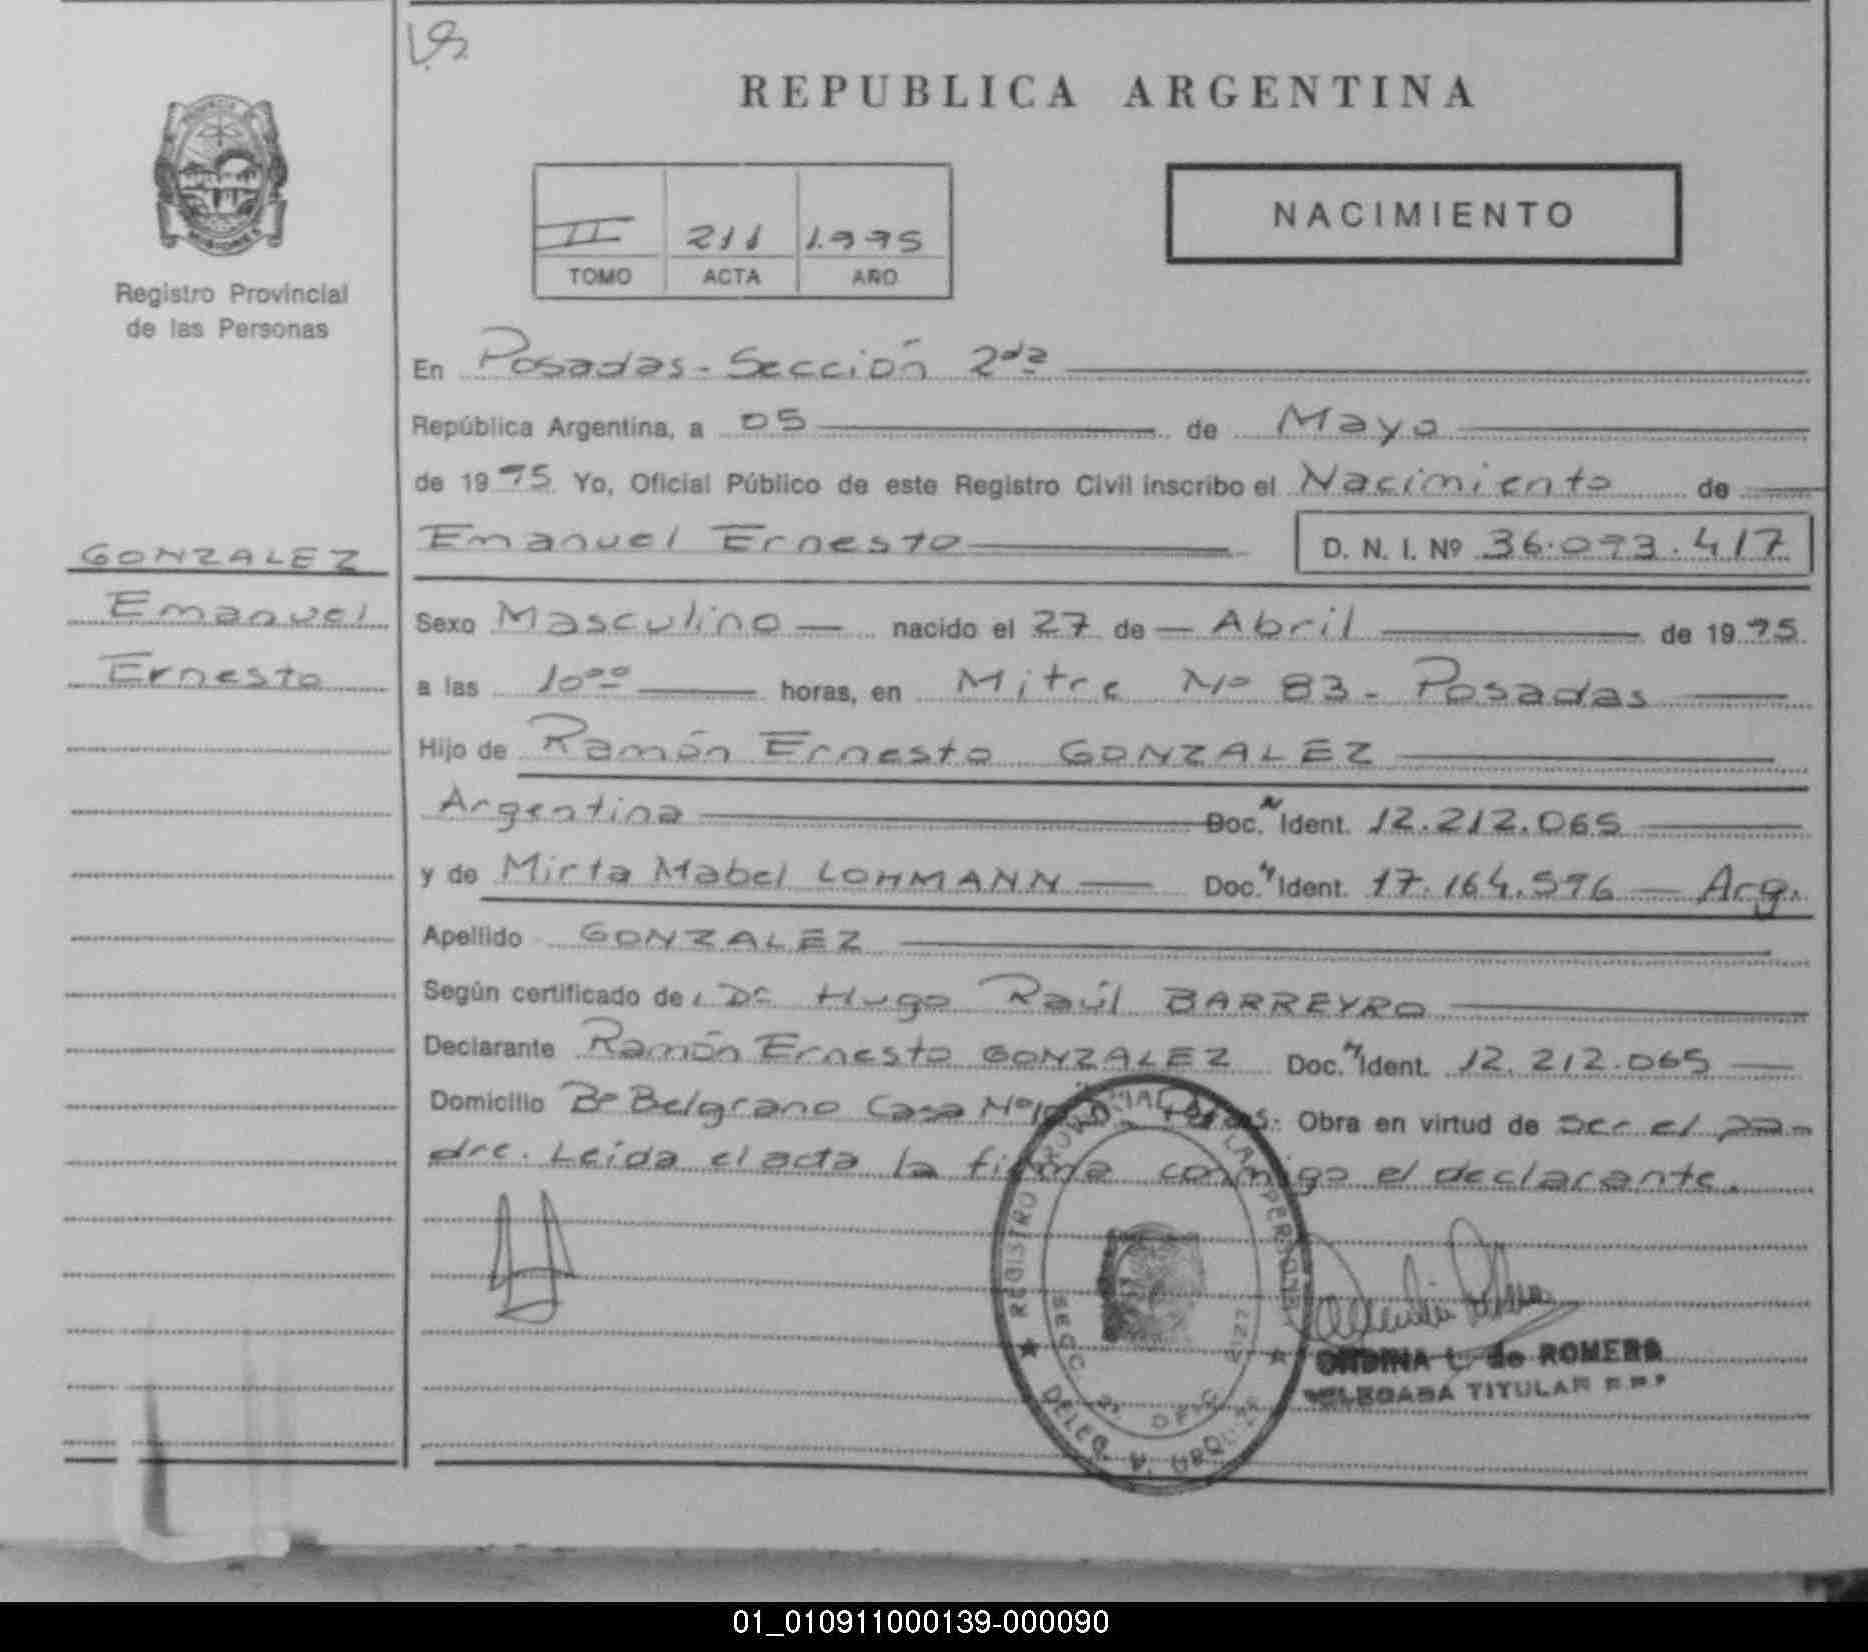 REPUBLICA ARGENTINA
MISIONES
Registro Provincial
de las Personas
II 211 1.995
TOMO ACTA AÑO
NACIMIENTO
En Posadas - Sección 2da
República Argentina, a 05 de Mayo
de 1995 Yo, Oficial Público de este Registro Civil inscribo el Nacimiento de
Emanuel Ernesto D. N. I. Nº 36.093.417
GONZALEZ
Emanuel
Ernesto
Sexo Masculino nacido el 27 de Abril de 1995
a las 10°° horas, en Mitre Nº 83 - Posadas
Hijo de Ramón Ernesto GONZALEZ
Argentina Doc. Ident. 12.212.065
y de Mirta Mabel LOHMANN Doc. Ident. 17.164.596 Arg.
Apellido GONZALEZ
Según certificado de: Dr Hugo Raúl BARREYRO
Declarante Ramón Ernesto GONZALEZ Doc. Ident. 12.212.065
Domicilio Bº Belgrano Casa Nº Obra en virtud de ser el pa-
dre. Leída el acta la firma conmigo el declarante.
REGISTRO PROVINCIAL DE LAS PERSONAS
SECC. 2ª OFIC.
DELEG.
ONDINA L. de ROMERO
DELEGADA TITULAR R.P.P
01_010911000139-000090